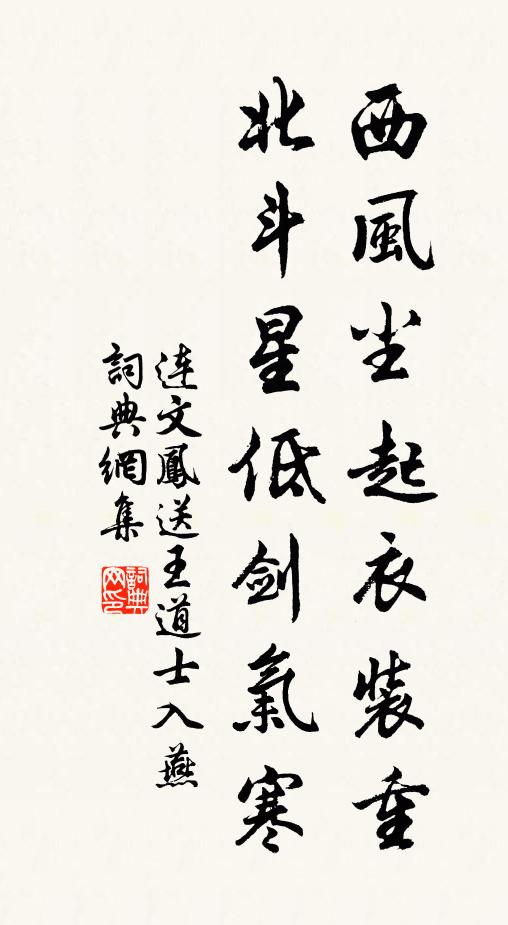 西風尘起衣装重
北斗星低剑氣寒
連文鳳送王道士入燕
詞典網集
詞典网印